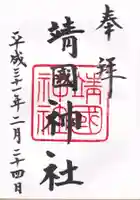 奉拝
靖國神社
平成三十一年二月二十四日
靖國神社